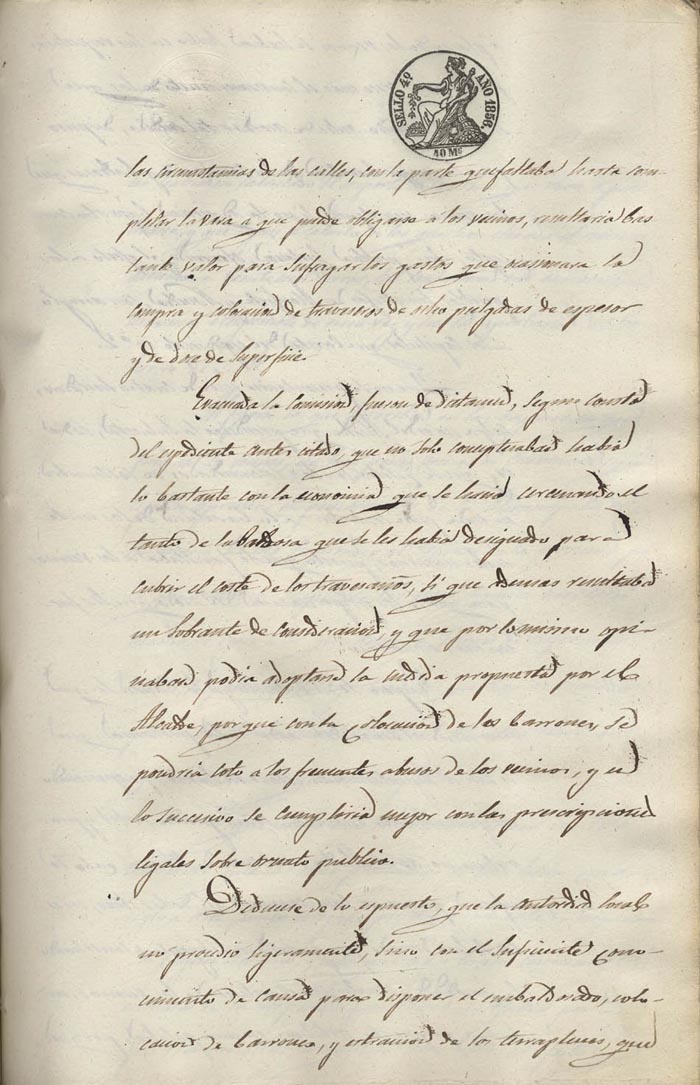 SELLO 4º AÑO 1856.
40 Ms
las circunstancias de las calles, con la parte que faltaba hasta com-
pletar la vara a que puede obligarse a los vecinos, resultaria bas
tante valor para sufragar los gastos que ocasionara la
compra y colocacion de traveseros de ocho pulgadas de espesor
y de doce de superficie.
Evacuada la Comision, fueron de dictamen, segun consta
del espediente antes citado, que no solo conceptuaban habia
lo bastante con la economia que se hacia cercenando el
tanto de la baldosa que se les habia designado para
cubrir el coste de los travesaños, si que demas resultaba
un sobrante de consideracion, y que por lo mismo opi-
naban podia adoptarse la medida propuesta por el
Alcalde, por que con la colocacion de los barrones, se
pondria coto a los frecuentes abusos de los vecinos, y en
lo succesivo se cumpliria mejor con las prescripciones
legales sobre ornato publico.
Deducese de lo espuesto, que la autoridad local
no procedio ligeramente, sino con el suficiente cono-
cimiento de causa para disponer el embaldosado, colo-
cacion de barrones, y estraccion de los terraplenes, que